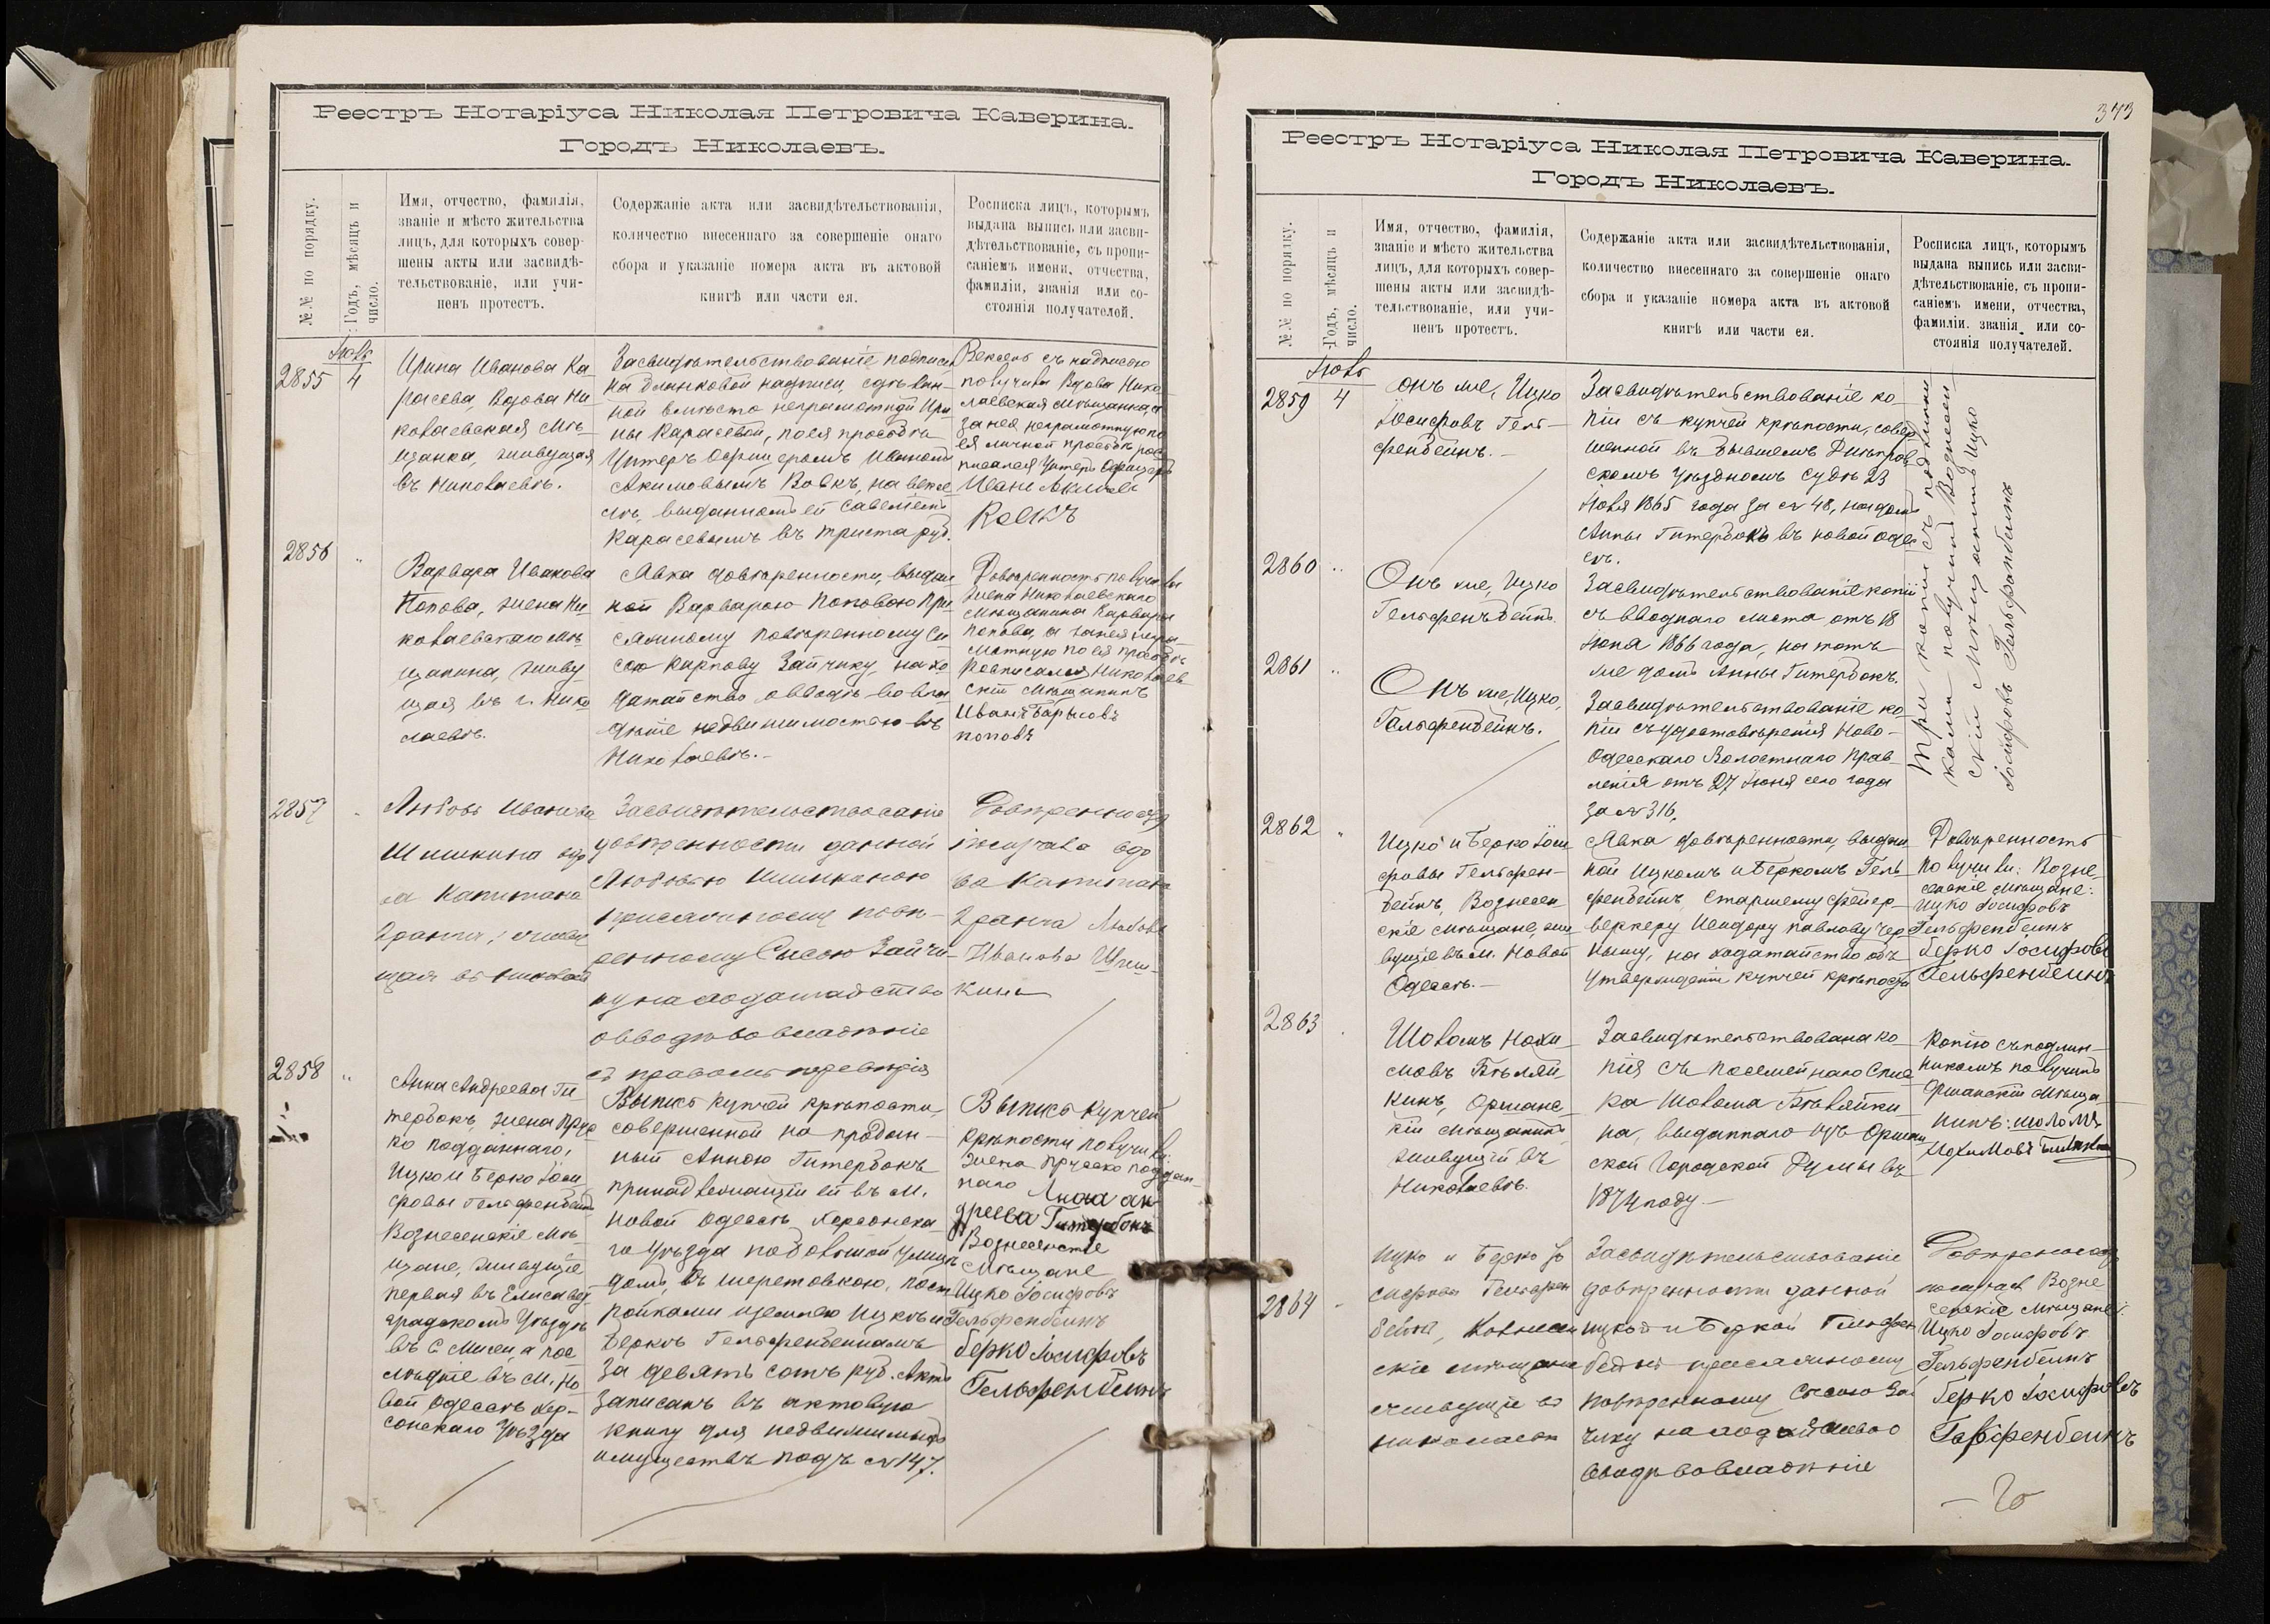 Реестръ Нотаріуса Николая Петровича Каверина.
Городъ Николаевъ.
№№ по порядку.
Годъ, мѣсяцъ и число.
Имя, отчество, фамилія,
званіе и мѣсто жительства
лицъ, для которыхъ совер-
шены акты или засвидѣ-
тельствованіе, или учи-
ненъ протестъ.
Содержаніе акта или засвидѣтельствованія,
количество внесеннаго за совершеніе онаго
сбора и указаніе номера акта въ актовой
книгѣ или части ея.
Росписка лицъ, которымъ
выдана выпись или засви-
дѣтельствованіе, съ пропи-
саніемъ имени, отчества,
фамиліи, званія или со-
стоянія получателей.
Іюль
2855 4
Ирина Иванова Ка-
расева, Вдова Ни-
колаевская Мѣ-
щанка, живущая
въ Николаевѣ.
Засвидѣтельствованіе подписи
на бланковой надписи, сдѣлан-
ной вмѣсто неграмотной Ири
ны Карасевой, по ея просьбѣ
Унтеръ Офицеромъ Иваномъ
Акимовымъ Вовкъ, на вексе
лѣ, выданномъ ей Савеліемъ
Карасевымъ въ триста руб.
Вексель съ надписью
получила Вдова Нико-
лаевская мѣщанка, а
за нея неграмотную по
ея личной просьбѣ рос-
писался Унтеръ Офицеръ
Иванъ Акимовъ
Вовкъ
2856 "
Варвара Иванова
Попова, жена Ни-
колаевскаго Мѣ-
щанина, живу-
щая въ г. Нико
лаевѣ.
Явка довѣренности, выдан
ной Варварою Поповою При-
сяжному Повѣренному Сы
сою Карпову Зайчику, на хо
датайство о вводѣ во вла
дѣніе недвижимостью въ
Николаевѣ.
Довѣренность получила
жена Николаевскаго
Мѣщанина Варвара
Попова, а за нея негра
мотную по ея просьбѣ
росписался Николаев
скій Мѣщанинъ
Иванъ Барысовъ
Поповъ
2857 "
Любовь Иванова
Шишкина вдо
ва Капитана
2 ранга, живу
щая въ Николаевѣ
Засвидѣтельствованіе
довѣренности данной
Любовью Шишкиною
присяжному повѣ-
ренному Сысою Зайчи-
ку на ходатайство
о вводѣ во владѣніе
съ правомъ передовѣрія
Довѣренность
получила вдо
ва Капитана
2 ранга Любовь
Иванова Шиш-
кина
2858 "
Анна Андреева Ги-
тербокъ, жена Прус
ко подданнаго,
Ицко и Берко Іоси
фовы Гельфенбейнъ
Вознесенскіе Мѣ-
щане, живущіе
первая въ Елисавет
градскомъ Уѣздѣ
въ С. , а пос
лѣдніе въ М. Но
вой Одессѣ Хер-
сонскаго Уѣзда
Выпись купчей крѣпости,
совершенной на продан-
ный Анною Гитербокъ
принадлежащій ей въ М.
Новой Одессѣ, Херсонска
го Уѣзда по Большой Улицѣ
домъ, въ шеретовкою, пост
ройками и землею Ицкѣ и
Беркѣ Гельфенбейнамъ
за девять сотъ руб. Актъ
записанъ въ актовую
книгу для недвижимыхъ
имуществъ подъ № 147.
Выпись Купчей
крѣпости получили:
жена Прусско поддан
наго Анна Ан
дреева Гитербокъ
Вознесенскіе
Мѣщане
Ицко Іосифовъ
Гельфенбейнъ
Берко Іосифовъ
Гельфенбейнъ
373
Реестръ Нотаріуса Николая Петровича Каверина.
Городъ Николаевъ.
№№ по порядку.
Годъ, мѣсяцъ и число.
Имя, отчество, фамилія,
званіе и мѣсто жительства
лицъ, для которыхъ совер-
шены акты или засвидѣ-
тельствованіе, или учи-
ненъ протестъ.
Содержаніе акта или засвидѣтельствованія,
количество внесеннаго за совершеніе онаго
сбора и указаніе номера акта въ актовой
книгѣ или части ея.
Росписка лицъ, которымъ
выдана выпись или засви-
дѣтельствованіе, съ пропи-
саніемъ имени, отчества,
фамиліи, званія или со-
стоянія получателей.
Іюль
2859 4
Онъ же, Ицко
Іосифовъ Гель-
фенбейнъ.
Засвидѣтельствованіе ко-
піи съ купчей крѣпости, совер
шенной въ бывшемъ Днѣпров
скомъ Уѣздномъ Судѣ 23
Ноября 1865 года за № 48, на домъ
Анны Гитербокъ въ Новой Одес
сѣ.
Три копіи съ подлинни-
ками получилъ Вознесен-
скій Мѣщанинъ Ицко
Іосифовъ Гельфенбейнъ
2860 "
Онъ же, Ицко
Гельфенъбейнъ.
Засвидѣтельствованіе копіи
съ вводнаго листа отъ 18
Іюня 1866 года, на тотъ
же домъ Анны Гитербокъ.
2861 "
Онъ же, Ицко,
Гельфенбейнъ.
Засвидѣтельствованіе ко-
піи съ удостовѣренія Ново-
Одесскаго Волостнаго Прав-
ленія отъ 27 Іюня сего года
за № 316.
2862 "
Ицко и Берко Іоси
фовы Гельфен-
бейнъ, Вознесен
скіе мѣщане, жи
вущіе въ М. Новой
Одессѣ.
Явка довѣренности, выдан
ной Ицкомъ и Беркомъ Гель-
фенбейнъ Старшему фейер-
веркеру Исидору Павлову Чер
ному, на ходатайство объ
утвержденіи купчей крѣпости
Довѣренность
получили: Возне-
сенскіе мѣщане:
Ицко Іосифовъ
Гельфенбейнъ
Берко Іосифовъ
Гельфенбейнъ
2863
Шоломъ Нохи-
мовъ Бѣляй-
кинъ, Оршанс-
кій мѣщанинъ
живущій въ
Николаевѣ.
Засвидѣтельствована ко-
пія съ посемейнаго Спис
ка Шолома Бѣляйки
на, выданнаго изъ Оршан
ской Городской Думы въ
1874 году
Копію съ подлин-
никомъ получилъ
Оршанскій мѣща
нинъ: Шоломъ
Нохимовъ
2864
Ицко и Берко Іо
сифовы Гельфен
бейнъ, Вознесен
скіе мѣщане
живущіе въ
Николаевѣ
Засвидѣтельствованіе
довѣренности данной
Ицкой и Беркой Гельфен
бейнъ присяжному
повѣренному Сысою Зай
чику на ходатайство о
вводѣ во владѣніе
Довѣренность
получили Возне
сенскіе Мѣщане:
Ицко Іосифовъ
Гельфенбейнъ
Берко Іосифовъ
Гельфенбейнъ